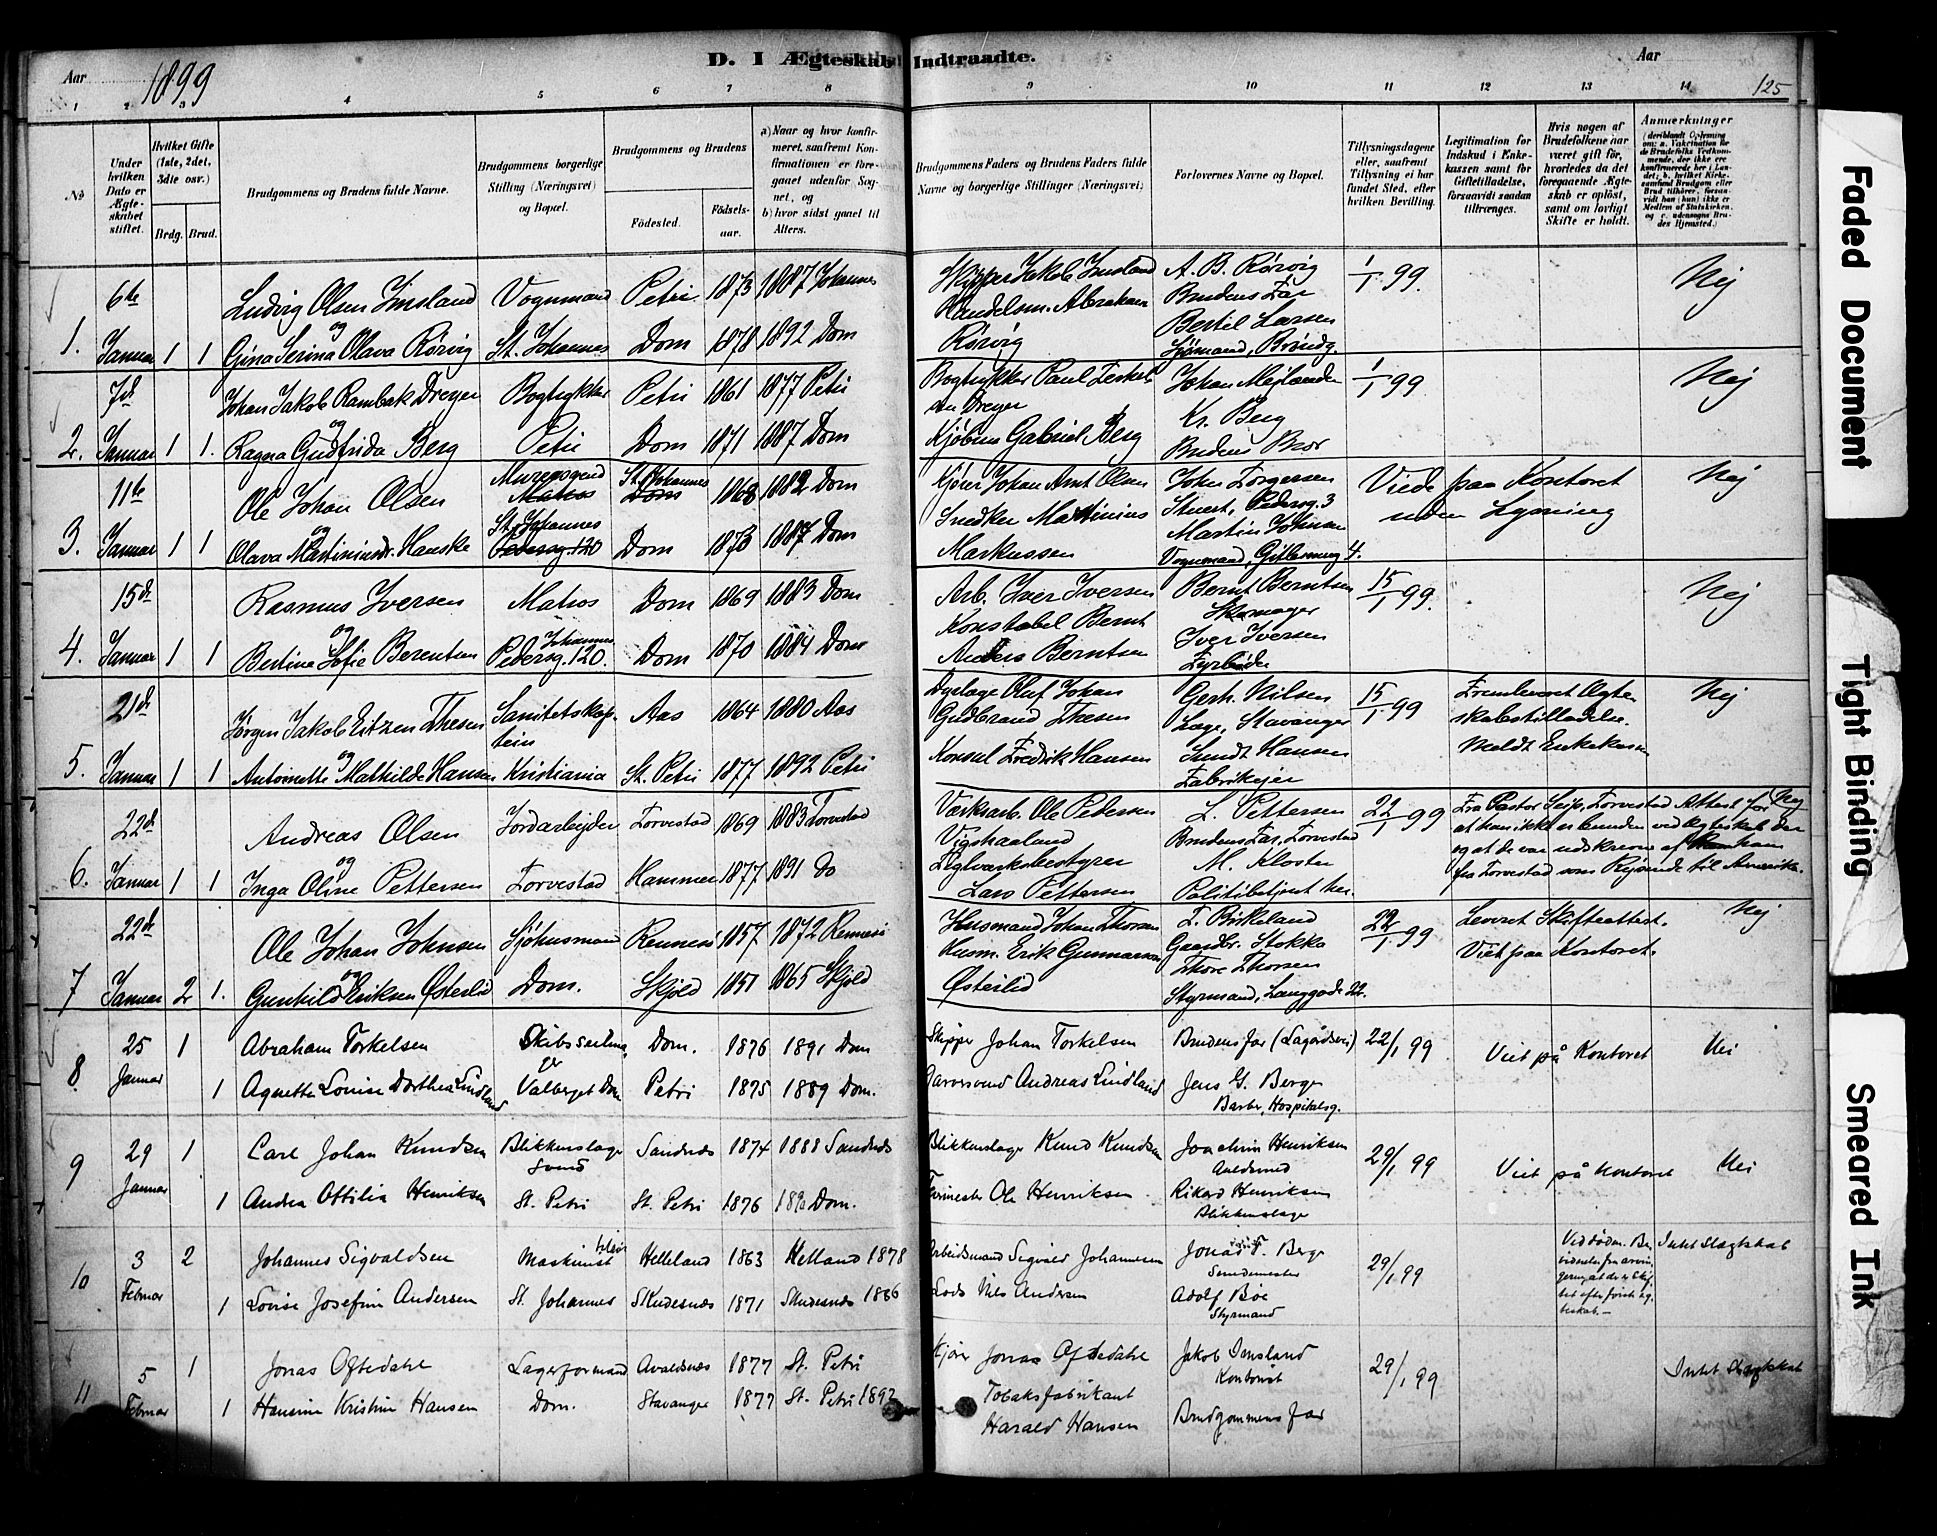 D. I Ægteskab Indtraadte.
Aar 1899
Aar
125
1 2 3 4 5 6 7 8 9 10 11 12 13 14
No.
Under hvilken Dato er Ægteskabet stiftet.
Hvilket Gifte (1ste, 2det, 3die osv.)
Brdg. Brud.
Brudgommens og Brudens fulde Navne.
Brudgommens borgerlige Stilling (Næringsvei) og Bopæl.
Brudgommens og Brudens
Fødested.
Fødsels-aar.
a) Naar og hvor konfirmeret, saafremt Konfirmationen er foregaaet udenfor Sognet, og
b) hvor sidst gaaet til Alters.
Brudgommens Faders og Brudens Faders fulde Navne og borgerlige Stillinger (Næringsvei)
Forlovernes Navne og Bopæl.
Tillysningsdagene eller, saafremt Tillysning ei har fundet Sted, efter hvilken Bevilling.
Legitimation for Indskud i Enkekassen samt for Giftetilladelse, forsaavidt saadan tiltrænges.
Hvis nogen af Brudefolkene har været gift før, hvorledes da det foregaaende Ægteskab er opløst, samt om lovligt Skifte er holdt.
Anmærkninger
1. 6te Januar 1 1
Ludvig Olsen Imsland
og
Gina Serina Olava Rørvig
Vognmand
St. Johannes
Petri 1873 1887 Johannes
Dom 1878 1892 Dom
Skipper Jakob Imsland
Handelsm. Abraham
Rørvig
A. B. Rørvig
Brudens Far
Bertil Larsen
Sjømand, Brøndg.
1/1 99.
Nej
2. 7d Januar 1 1.
Johan Jakob Rambak Dreyer
og
Ragna Gudfrida Berg
Bogtrykker
Petri
Petri 1861 1877 Petri
Dom 1871 1887 Dom
Bogtrykker Paul
Dreyer
Gabriel Berg
Johan
Kr. Berg
Brudens Bror
1/1 99
Nej
3. 11te Januar 1 1
Ole Johan Olsen
og
Olava Martiniusdr. Hauske
Murersvend
Matros
St. Johannes
Pedersg. 120
St. Johannes
Dom 1868 1882 Dom
Dom 1873 1887 Dom
Kjører Johan Arnt Olsen
Snedker Martinius
Markussen
John Torgersen
Stuert, Pedersg. 3
Martin Johnsen
Vognmand, 4.
Viede paa Kontoret
uden Lysning
Nej
4. 15de Januar 1 1
Rasmus Iversen
og
Bertine Sofie Berentsen
Matros
Johannes
Pedersg. 120.
Dom 1869 1883 Dom
Dom 1870 1884 Dom
Arb. Iver Iversen
Konstabel Bernt
Anders Berntsen
Bernt Berntsen
Skomager
Iver Iversen
Fyrbøder
15/1 99.
Nej
5. 21de Januar 1 1
Jørgen Jakob Eitzen Thesen
og
Antoinette Mathilde Hansen
Sanitetskaptein
Kristiania
Aas 1864 1880 Aas
St. Petri 1877 1892 Petri
Dyrlæge Oluf Johan
Gudbrand Thesen
Konsul Fredrik Hansen
Gerh. Nilsen
Læge, Stavanger
Sundt Hansen
Fabrikeier
15/1 99
Fremlevert Ægteskabstilladelse.
Meldt Enkekassen
Nej
6. 22de Januar 1 1
Andreas Olsen
og
Inga Oline Pettersen
Jordarbejder
Torvestad
Torvestad 1869 1883 Torvestad
Hammer 1877 1891 Do
Værksarb. Ole Pedersen
Vigshaaland
Teglværksbestyrer
Lars Pettersen
L. Pettersen
Brudens Far, Torvestad
M. Kloster
Politibetjent her.
22/1 99
Fra Pastor Seip, Torvestad Attest for
at han ikke er bunden ved Ægteskab der
og at de var udskrevne af ham
fra Torvestad som Rejsende til Amerika.
Nej
7 22de Januar 2 1.
Ole Johan Johnsen
og
Gunhild Eriksen Østerlid
Sjøhusmand
Dom.
Rennesø 1857 1872 Rennesø
Skjold 1851 1865 Skjold
Husmand Johan Thorsen
Husm. Erik Gunnarson
Østerlid
T. Birkeland
Gaardbr. Stokka
Thore Thorsen
Styrmand, Langgade 22.
22/1 99
Leveret Skifteattest.
Viet paa Kontoret.
Nej
8. 25 Januar 1 1
Abraham Torkelsen
Agnette Louise Dorthea Lindland
Skibsseilm.
Valberget Dom
Dom. 1876 1891 Dom
Petri 1875 1889 Dom.
Skipper Johan Torkelsen
Garversvend Andreas Lindland
Brudens far (Lagårdsvei)
Jens G. Berge
Barber, Hospitalsg.
22/1 99
Viet på Kontoret
Nei
9 29 Januar 1 1
Carl Johan Knudsen
Andrea Ottilia Henriksen
Blikkenslagersvend
St. Petri
Sandnæs 1874 1888 Sandnæs
St. Petri 1876 1890 Dom.
Blikkenslager Knud Knudsen
Ole Henriksen
Joachim Henriksen
Rikard Henriksen
Blikkenslager
29/1 99
Viet på kontoret
Nei
10 3 Februar 2 1
Johannes Sigvaldsen
Lovise Josefine Andersen
Maskinist
St. Johannes
Helleland 1863 Helland 1878
Skudesnæs 1871 Skudesnæs 1886
Arbeidsmand Sigvald Johannesen
Lods Nils Andersen
Jonas T. Berge
Smedemester
Adolf Bøe
Styrmand
29/1 99
Ved døden. Bevidnelse fra arvingerne, at der er skiftet efter første ægteskab.—
Intet Slægtskab
11 5 Februar 1 1
Jonas Oftedahl
Hansine Kristine Hansen
Lagerformand
Dom.
Avaldsnæs 1877 St. Petri
Stavanger 1877 St. Petri 1892
Kjører Jonas Oftedahl
Tobaksfabrikant
Harald Hansen
Jakob Imsland
Kontorist
Brudgommens far
29/1 99
Intet Slægtskab
Faded Document
Tight Binding
Smeared Ink